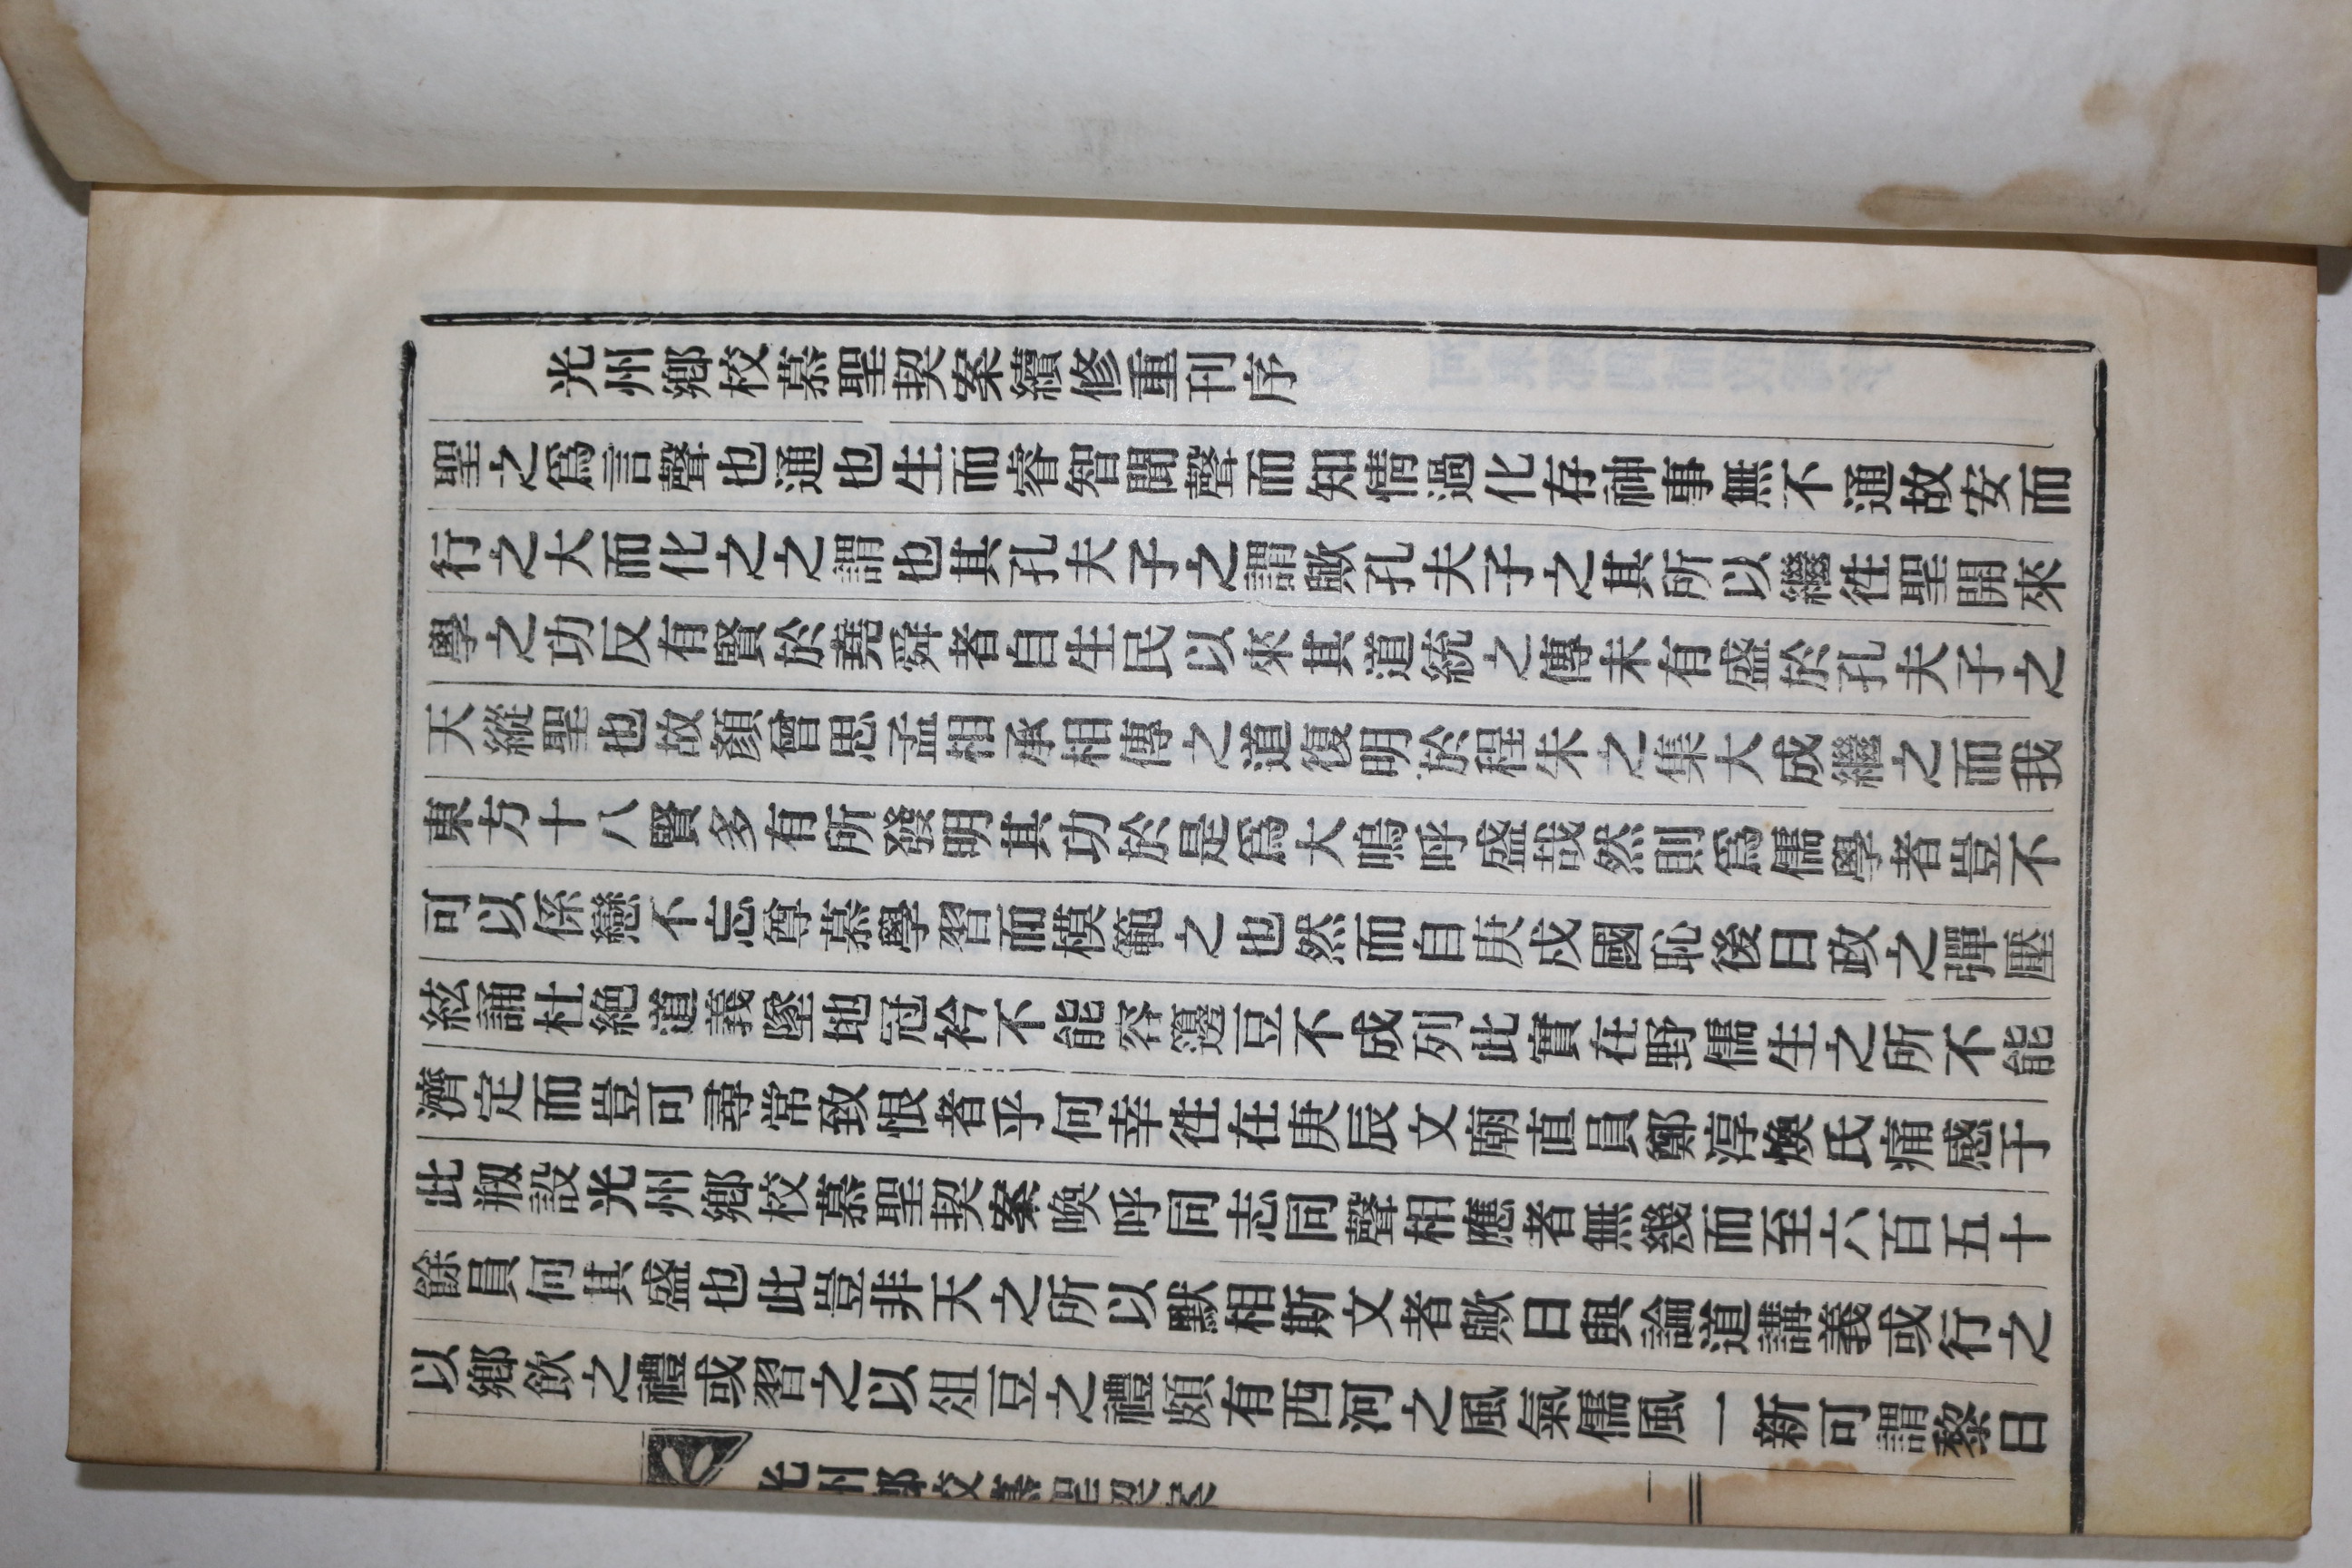 光州鄕校慕聖契案續修重刊序
聖之爲言聲也通也生而睿智聞聲而知情過化存神事無不通故安而
行之大而化之之謂也其孔夫子之謂歟孔夫子之其所以繼徃聖開來
學之功反有賢於堯舜者自生民以來其道統之傳未有盛於孔夫子之
天縱聖也故顔曾思孟相承相傳之道復明於程朱之集大成繼之而我
東方十八賢多有所發明其功於是爲大嗚呼盛哉然則爲儒學者豈不
可以係戀不忘尊慕學習而模範之也然而自庚戌國恥後日政之彈壓
絃誦杜絶道義墜地冠衿不能容籩豆不成列此實在野儒生之所不能
濟定而豈可尋常致恨者乎何幸徃在庚辰文廟直員鄭淳煥氏痛感于
此剏設光州鄕校慕聖契案喚呼同志同聲相應者無幾而至六百五十
餘員何其盛也此豈非天之所以默相斯文者歟日與論道講義或行之
以鄕飮之禮或習之以俎豆之禮頗有西河之風氣儒風一新可謂黎日
光州鄕校慕聖契案
一